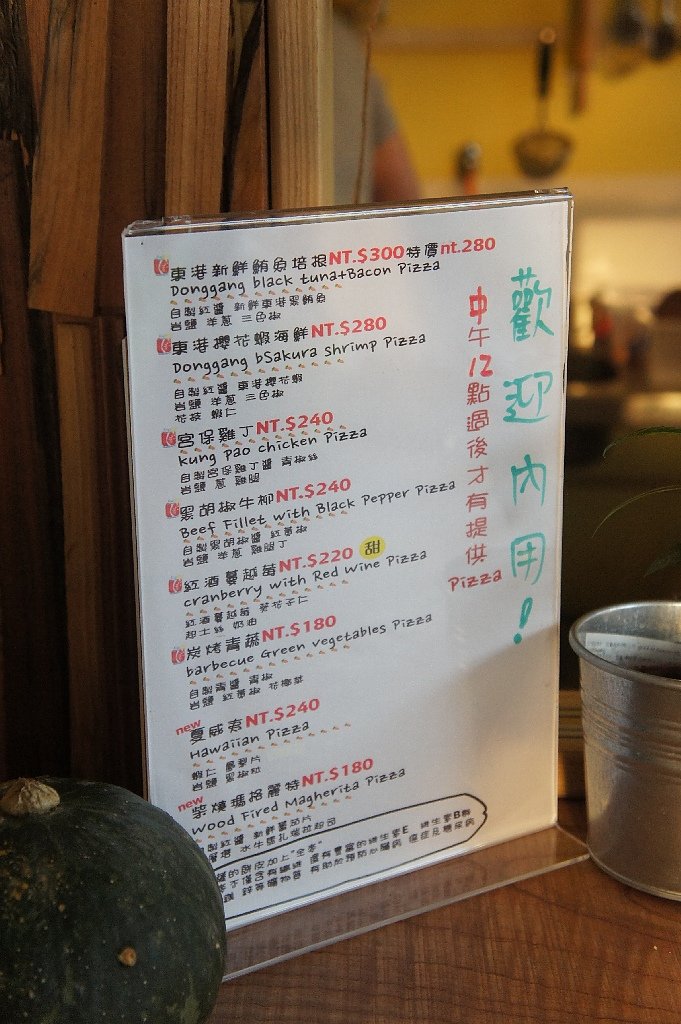 東港新鮮鮪魚培根NT.$300特價nt.280
Donggang black tuna+Bacon Pizza
自製紅醬 新鮮東港黑鮪魚
岩鹽 洋蔥 三色椒
東港櫻花蝦海鮮NT.$280
Donggang bSakura shrimp Pizza
自製紅醬 東港櫻花蝦
岩鹽 洋蔥 三色椒
花枝 蝦仁
宮保雞丁NT.$240
kung pao chicken Pizza
自製宮保雞丁醬 青椒絲
岩鹽 洋蔥 雞胸
黑胡椒牛柳NT.$240
Beef Fillet with Black Pepper Pizza
自製黑胡椒醬 紅黃椒
岩鹽 洋蔥
紅酒蔓越莓NT.$220 甜
cranberry with Red wine Pizza
紅酒蔓越莓 葵花子仁
起士絲 奶油
炭烤青蔬NT.$180
barbecue Green vegetables Pizza
自製青醬 青椒
岩鹽 紅黃椒 花椰菜
new
夏威夷NT.$240
Hawaiian Pizza
蝦仁 鳳梨片
岩鹽 黑椒粒
new
柴燒瑪格麗特NT.$180
wood Fired Magherita Pizza
歡迎內用!
中午12點過後才有提供Pizza